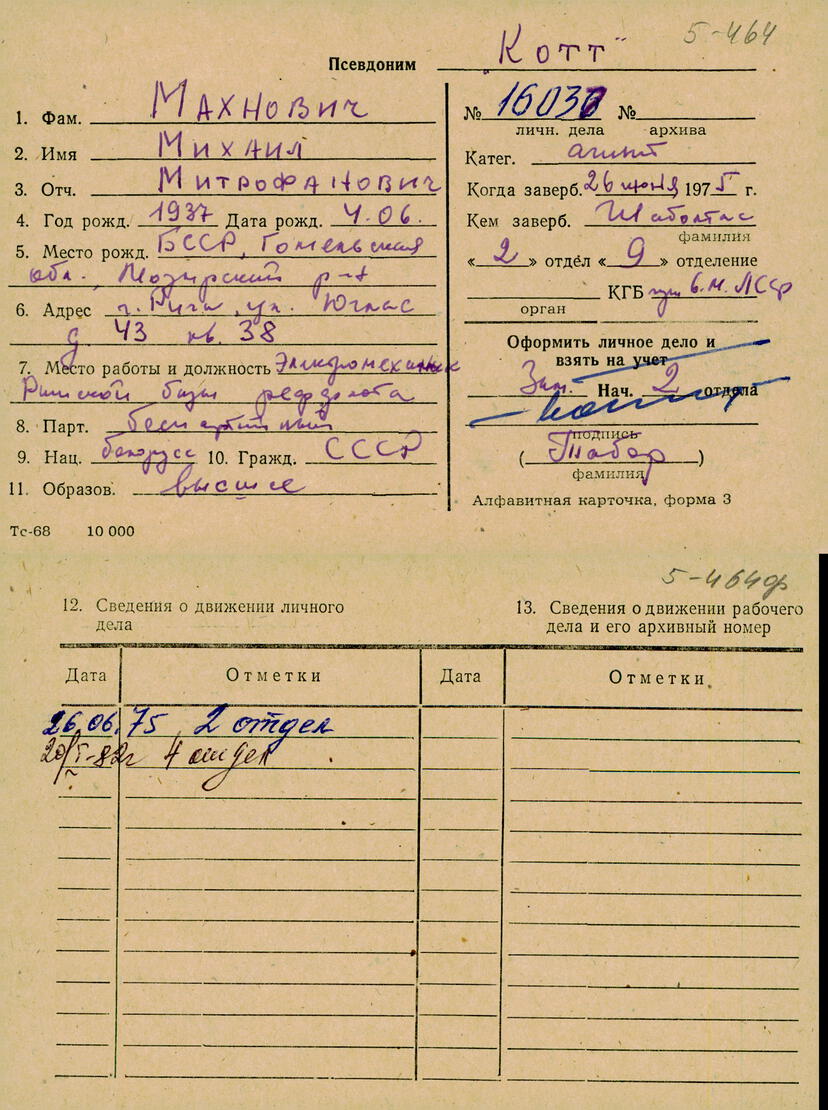 5-464
Псевдоним „Котт"
1. Фам. Махнович
2. Имя Михаил
3. Отч. Митрофанович
4. Год рожд. 1937 Дата рожд. 4.06.
5. Место рожд. БССР, Гомельская
обл. Мозырский р-н
6. Адрес г. Рига, ул. Юглас
д 43 кв. 38
7. Место работы и должность Электромеханик
Рижской базы рефрлота
8. Парт. беспартийный
9. Нац. белорусс 10. Гражд. СССР
11. Образов. высшее
Тс-68 10 000
№ 16037 №
личн. дела архива
Катег. агент
Когда заверб. 26 июня 1975 г.
Кем заверб. Шаболтас
фамилия
«2» отдел «9» отделение
КГБ при С.М. ЛССР
орган
Оформить личное дело и
взять на учет
Зам. Нач. 2 отдела
подпись
(Табор)
фамилия
Алфавитная карточка, форма 3
5-464др
12. Сведения о движении личного
дела
13. Сведения о движении рабочего
дела и его архивный номер
Дата Отметки Дата Отметки
26.06.75 2 отдел
4 отдел